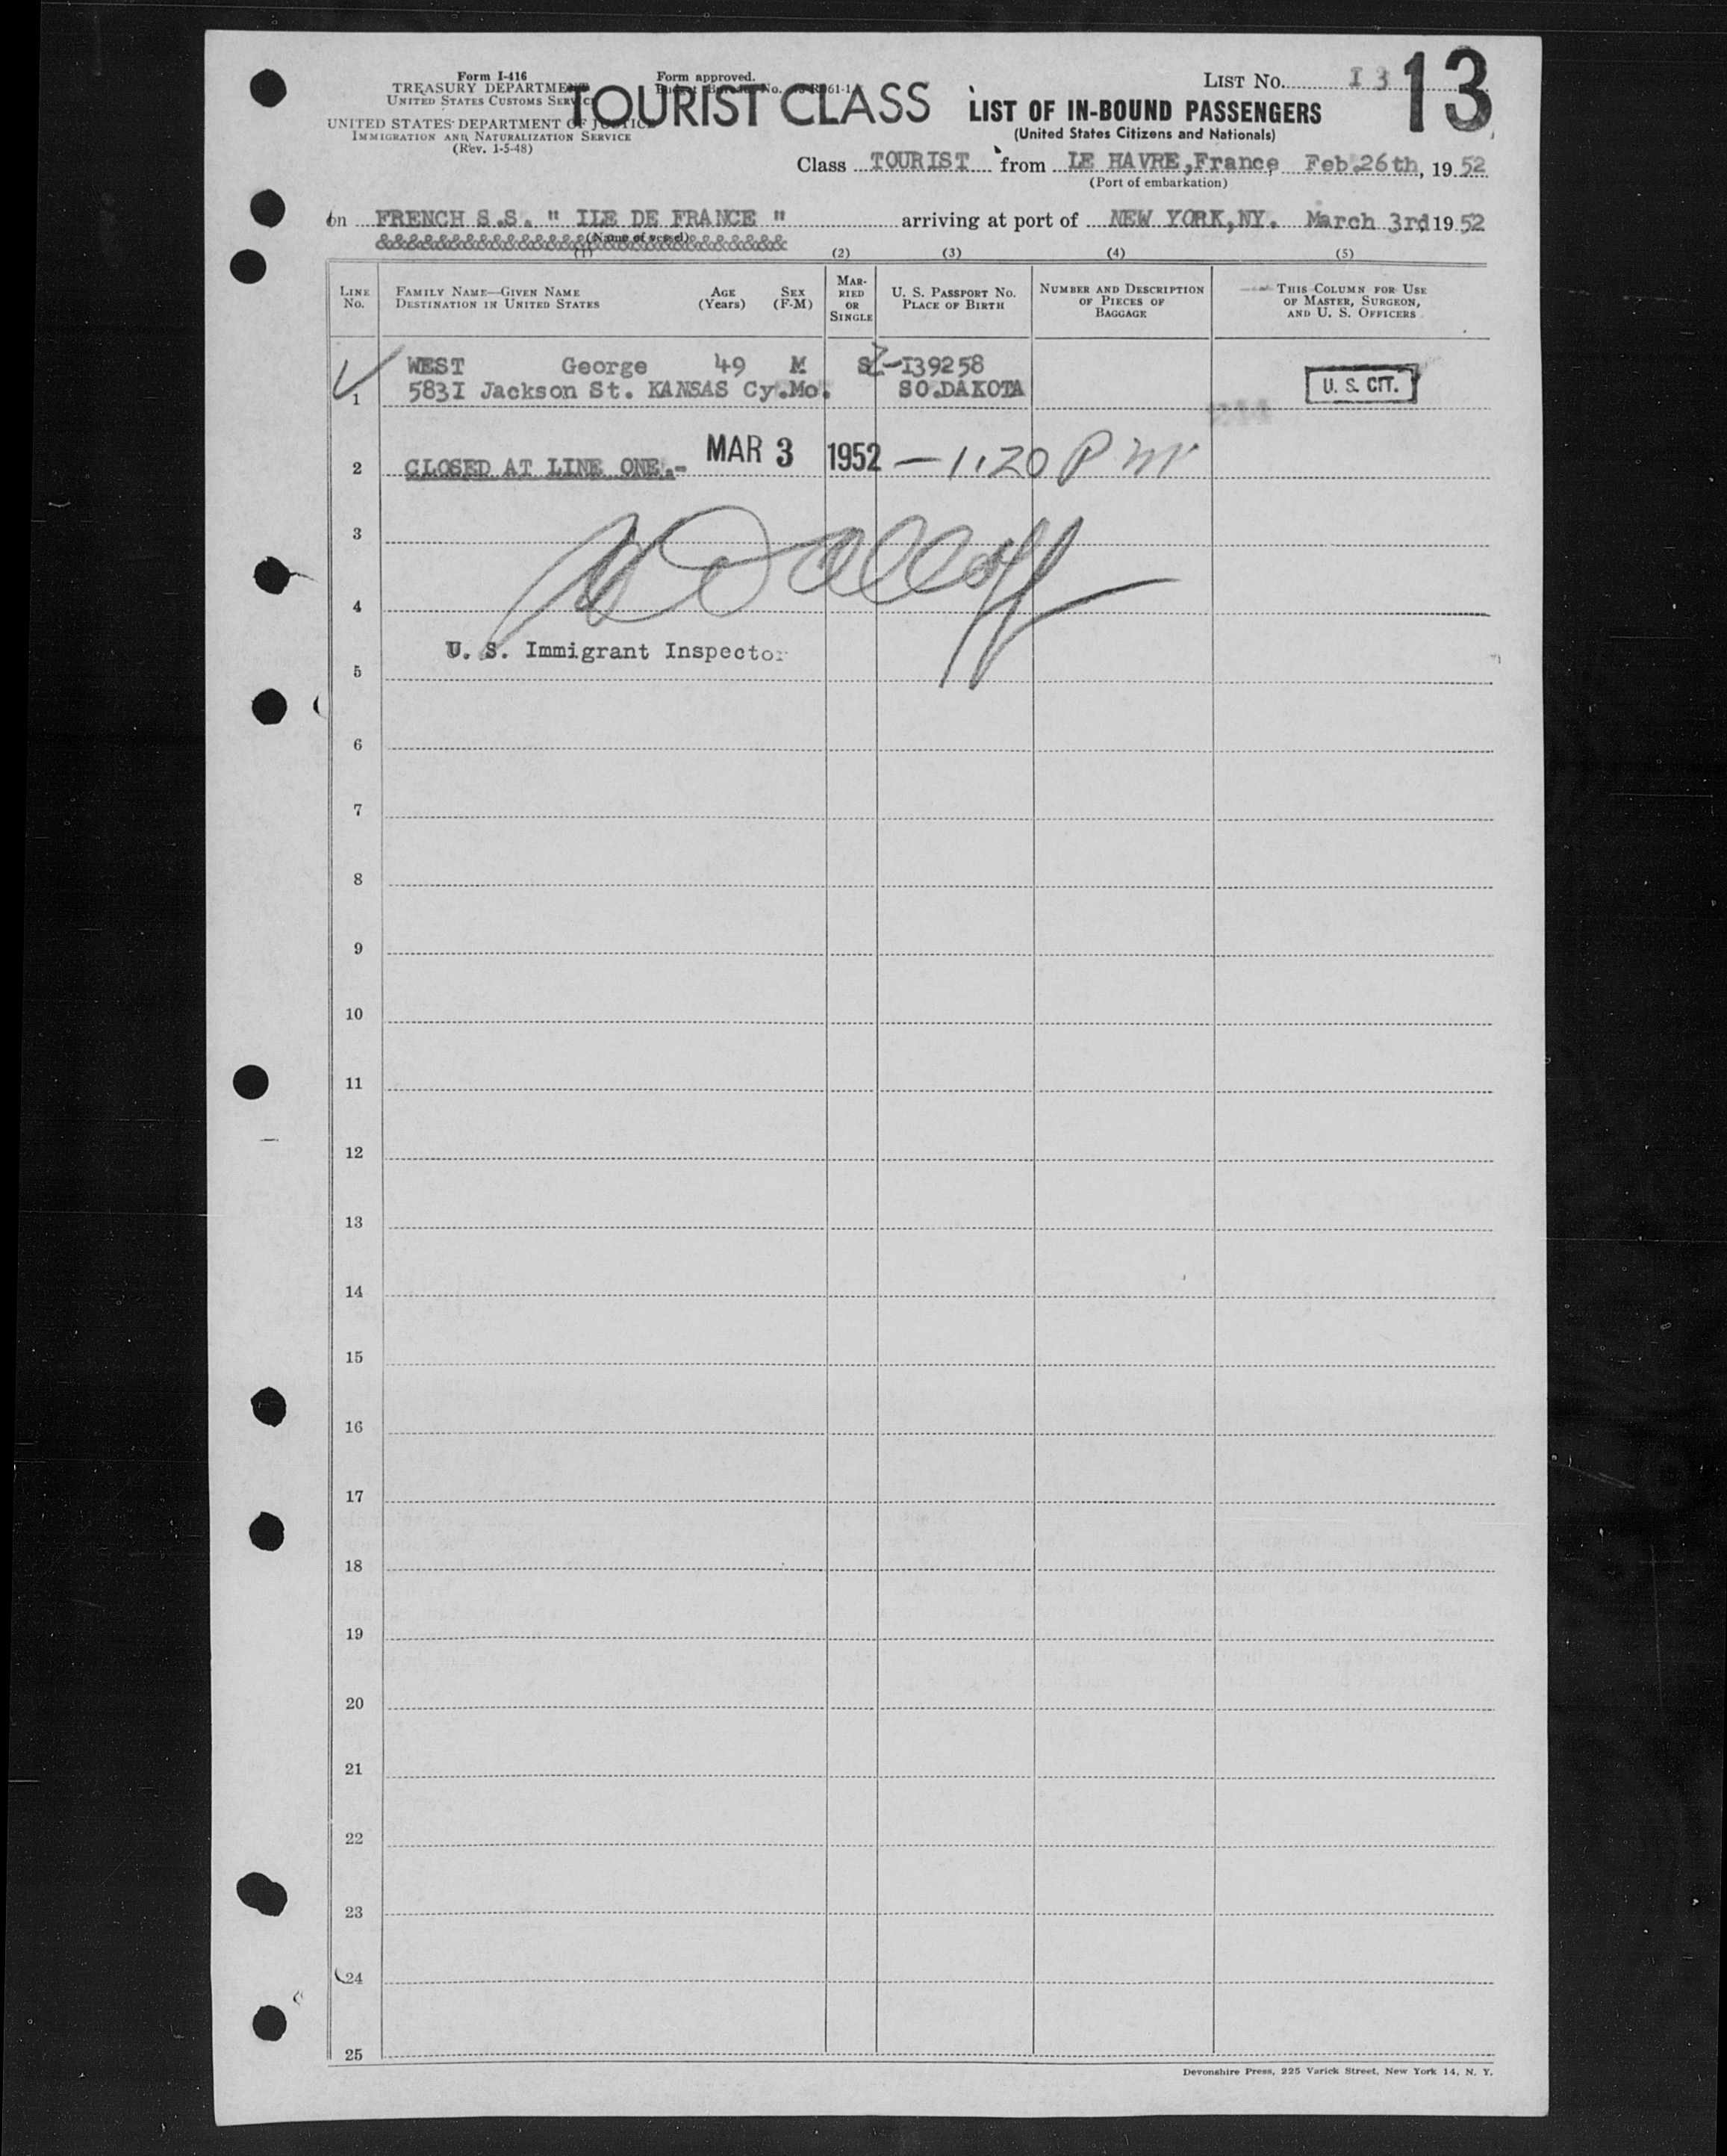 Form I-416
TREASURY DEPARTMENT
UNITED STATES CUSTOMS SERVICE
UNITED STATES DEPARTMENT OF JUSTICE
IMMIGRATION AND NATURALIZATION SERVICE
(Rev. 1-5-48)
Form approved.
TOURIST CLASS
LIST NO. I3 13
LIST OF IN-BOUND PASSENGERS
(United States Citizens and Nationals)
Class TOURIST from LE HAVRE,France, Feb.26th, 1952
(Port of embarkation)
on FRENCH S.S. " ILE DE FRANCE " arriving at port of NEW YORK,NY. March 3rd 1952
(Name of vessel)
(1) (2) (3) (4) (5)
LINE NO. FAMILY NAME—GIVEN NAME DESTINATION IN UNITED STATES AGE (Years) SEX (F-M) MARRIED OR SINGLE U. S. PASSPORT NO. PLACE OF BIRTH NUMBER AND DESCRIPTION OF PIECES OF BAGGAGE THIS COLUMN FOR USE OF MASTER, SURGEON, AND U. S. OFFICERS
WEST George 49 M S Z-I39258
1 583I Jackson St. KANSAS Cy.Mo. SO.DAKOTA U. S. CIT.
2 CLOSED AT LINE ONE.- MAR 3 1952 — 1.20 P m
3
4
U. S. Immigrant Inspector
5
6
7
8
9
10
11
12
13
14
15
16
17
18
19
20
21
22
23
24
25
Devonshire Press, 225 Varick Street, New York 14, N. Y.